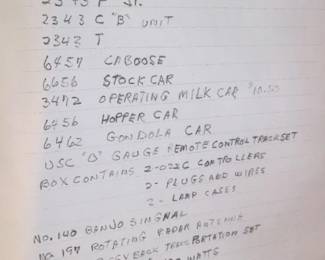 2343 P
2343 C "B" UNIT
2343 T
6457 CABOOSE
6656 STOCK CAR
3472 OPERATING MILK CAR $10.50
6456 HOPPER CAR
6462 GONDOLA CAR
USC "O" GAUGE REMOTE CONTROL TRACK SET
BOX CONTAINS 2-022C CONTROLLERS
2- PLUGS AND WIRES
2- LAMP CASES
NO. 140 BANJO SINGNAL
NO. 197 ROTATING RADAR ANTENNA
BACK TRANSPORTATION SET
WATTS